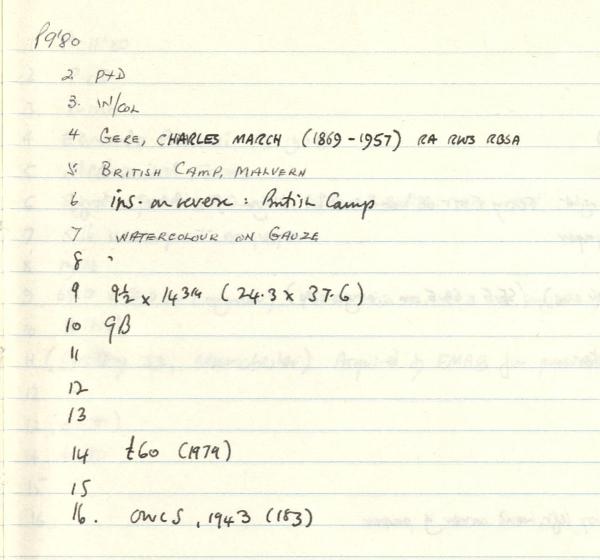 P9'80
2. P+D
3. IN/COL
4 GERE, CHARLES MARCH (1869-1957) RA RWS RBSA
5. BRITISH CAMP, MALVERN
6 ins. on reverse : British Camp
7 WATERCOLOUR ON GAUZE
8
9 9½ x 14 3/4 (24.3 x 37.6)
10 9B
11
12
13
14 £60 (1979)
15
16. OWCS, 1943 (183)